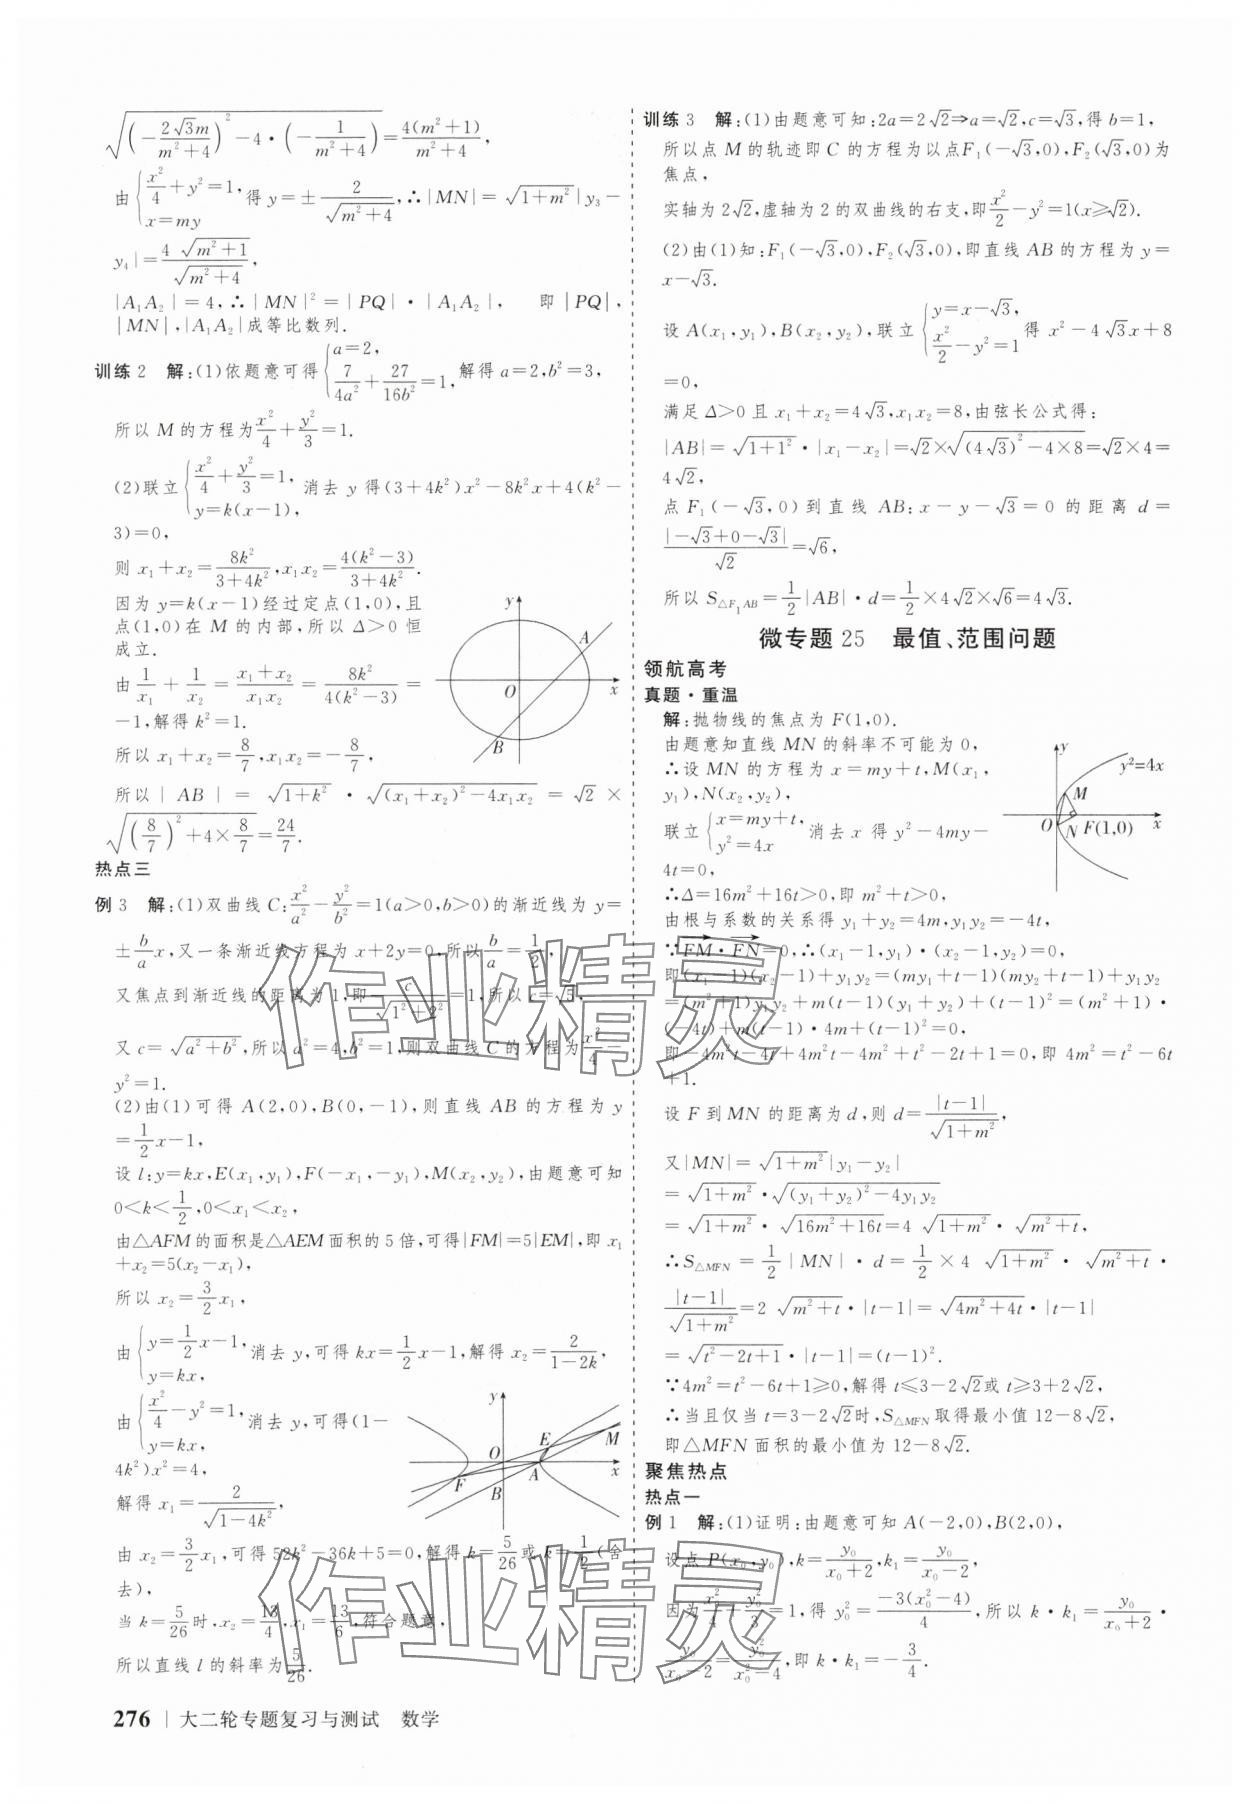 √((-2√3m/(m²+4))²-4·(-1/(m²+4)))=4(m²+1)/(m²+4),
由{x²/4+y²=1, x=my 得y=±2/√(m²+4),∴|MN|=√(1+m²)|y₃-
y₄|=4√(m²+1)/√(m²+4),
|A₁A₂|=4,∴|MN|²=|PQ|·|A₁A₂|, 即|PQ|,
|MN|,|A₁A₂|成等比数列.
训练2 解:(1)依题意可得{a=2, 7/4a²+27/16b²=1, 解得a=2,b²=3,
所以M的方程为x²/4+y²/3=1.
(2)联立{x²/4+y²/3=1, y=k(x-1), 消去y得(3+4k²)x²-8k²x+4(k²-
3)=0,
则x₁+x₂=8k²/(3+4k²),x₁x₂=4(k²-3)/(3+4k²).
因为y=k(x-1)经过定点(1,0),且
点(1,0)在M的内部,所以Δ>0恒
成立.
由1/x₁+1/x₂=(x₁+x₂)/x₁x₂=8k²/4(k²-3)=
-1,解得k²=1.
所以x₁+x₂=8/7,x₁x₂=-8/7,
所以|AB|=√(1+k²)·√((x₁+x₂)²-4x₁x₂)=√2×
√((8/7)²+4×8/7)=24/7.
y
A
O
x
B
热点三
例3 解:(1)双曲线C:x²/a²-y²/b²=1(a>0,b>0)的渐近线为y=
±b/a x,又一条渐近线方程为x+2y=0,所以b/a=1/2,
又焦点到渐近线的距离为1,即c/√(1²+2²)=1,所以c=√5,
又c=√(a²+b²),所以a²=4,b²=1,则双曲线C的方程为x²/4-
y²=1.
(2)由(1)可得A(2,0),B(0,-1),则直线AB的方程为y
=1/2x-1,
设l:y=kx,E(x₁,y₁),F(-x₁,-y₁),M(x₂,y₂),由题意可知
0<k<1/2,0<x₁<x₂,
由△AFM的面积是△AEM面积的5倍,可得|FM|=5|EM|,即x₁
+x₂=5(x₂-x₁),
所以x₂=3/2x₁,
由{y=1/2x-1, y=kx, 消去y,可得kx=1/2x-1,解得x₂=2/(1-2k),
由{x²/4-y²=1, y=kx, 消去y,可得(1-
4k²)x²=4,
解得x₁=2/√(1-4k²),
y
E
M
O
A
x
F
B
由x₂=3/2x₁,可得52k²-36k+5=0,解得k=5/26或k=1/2(舍
去),
当k=5/26时,x₂=13/4,x₁=13/6,符合题意,
所以直线l的斜率为5/26.
276 | 大二轮专题复习与测试 数学
训练3 解:(1)由题意可知:2a=2√2⇒a=√2,c=√3,得b=1,
所以点M的轨迹即C的方程为以点F₁(-√3,0),F₂(√3,0)为
焦点,
实轴为2√2,虚轴为2的双曲线的右支,即x²/2-y²=1(x≥√2).
(2)由(1)知:F₁(-√3,0),F₂(√3,0),即直线AB的方程为y=
x-√3.
设A(x₁,y₁),B(x₂,y₂),联立{y=x-√3, x²/2-y²=1 得x²-4√3x+8
=0,
满足Δ>0且x₁+x₂=4√3,x₁x₂=8,由弦长公式得:
|AB|=√(1+1²)·|x₁-x₂|=√2×√((4√3)²-4×8)=√2×4=
4√2,
点F₁(-√3,0)到直线AB:x-y-√3=0的距离d=
|-√3+0-√3|/√2=√6,
所以S△F₁AB=1/2|AB|·d=1/2×4√2×√6=4√3.
微专题25 最值、范围问题
领航高考
真题·重温
解:抛物线的焦点为F(1,0).
由题意知直线MN的斜率不可能为0,
∴设MN的方程为x=my+t,M(x₁,
y₁),N(x₂,y₂),
联立{x=my+t, y²=4x 消去x得y²-4my-
4t=0,
y
y²=4x
M
O
N F(1,0)
x
∴Δ=16m²+16t>0,即m²+t>0,
由根与系数的关系得y₁+y₂=4m,y₁y₂=-4t,
∵FM·FN=0,∴(x₁-1,y₁)·(x₂-1,y₂)=0,
即(x₁-1)(x₂-1)+y₁y₂=(my₁+t-1)(my₂+t-1)+y₁y₂
=(m²+1)y₁y₂+m(t-1)(y₁+y₂)+(t-1)²=(m²+1)·
(-4t)+m(t-1)·4m+(t-1)²=0,
即-4m²t-4t+4m²t-4m²+t²-2t+1=0,即4m²=t²-6t
+1.
设F到MN的距离为d,则d=|t-1|/√(1+m²),
又|MN|=√(1+m²)|y₁-y₂|
=√(1+m²)·√((y₁+y₂)²-4y₁y₂)
=√(1+m²)·√(16m²+16t)=4√(1+m²)·√(m²+t),
∴S△MFN=1/2|MN|·d=1/2×4√(1+m²)·√(m²+t)·
|t-1|/√(1+m²)=2√(m²+t)·|t-1|=√(4m²+4t)·|t-1|
=√(t²-2t+1)·|t-1|=(t-1)².
∵4m²=t²-6t+1≥0,解得t≤3-2√2或t≥3+2√2,
∴当且仅当t=3-2√2时,S△MFN取得最小值12-8√2,
即△MFN面积的最小值为12-8√2.
聚焦热点
热点一
例1 解:(1)证明:由题意可知A(-2,0),B(2,0),
设点P(x₀,y₀),k=y₀/(x₀+2),k₁=y₀/(x₀-2),
因为x₀²/4+y₀²/3=1,得y₀²=-3(x₀²-4)/4,所以k·k₁=y₀/(x₀+2)·
y₀/(x₀-2)=y₀²/(x₀²-4),即k·k₁=-3/4.
作业精灵
作业精灵